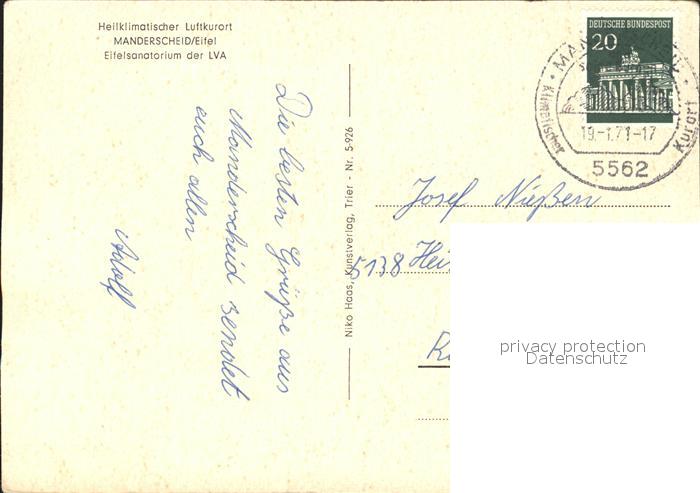 Heilklimatischer Luftkurort
MANDERSCHEID/Eifel
Eifelsanatorium der LVA
Die besten Grüße aus
Manderscheid sendet
euch allen
Adolf
Niko Haas, Kunstverlag, Trier - Nr. 5-926
DEUTSCHE BUNDESPOST
20
Klimatischer
Kurort
19.-1.71-17
5562
Josef Nießen
5138 Hei
privacy protection
Datenschutz